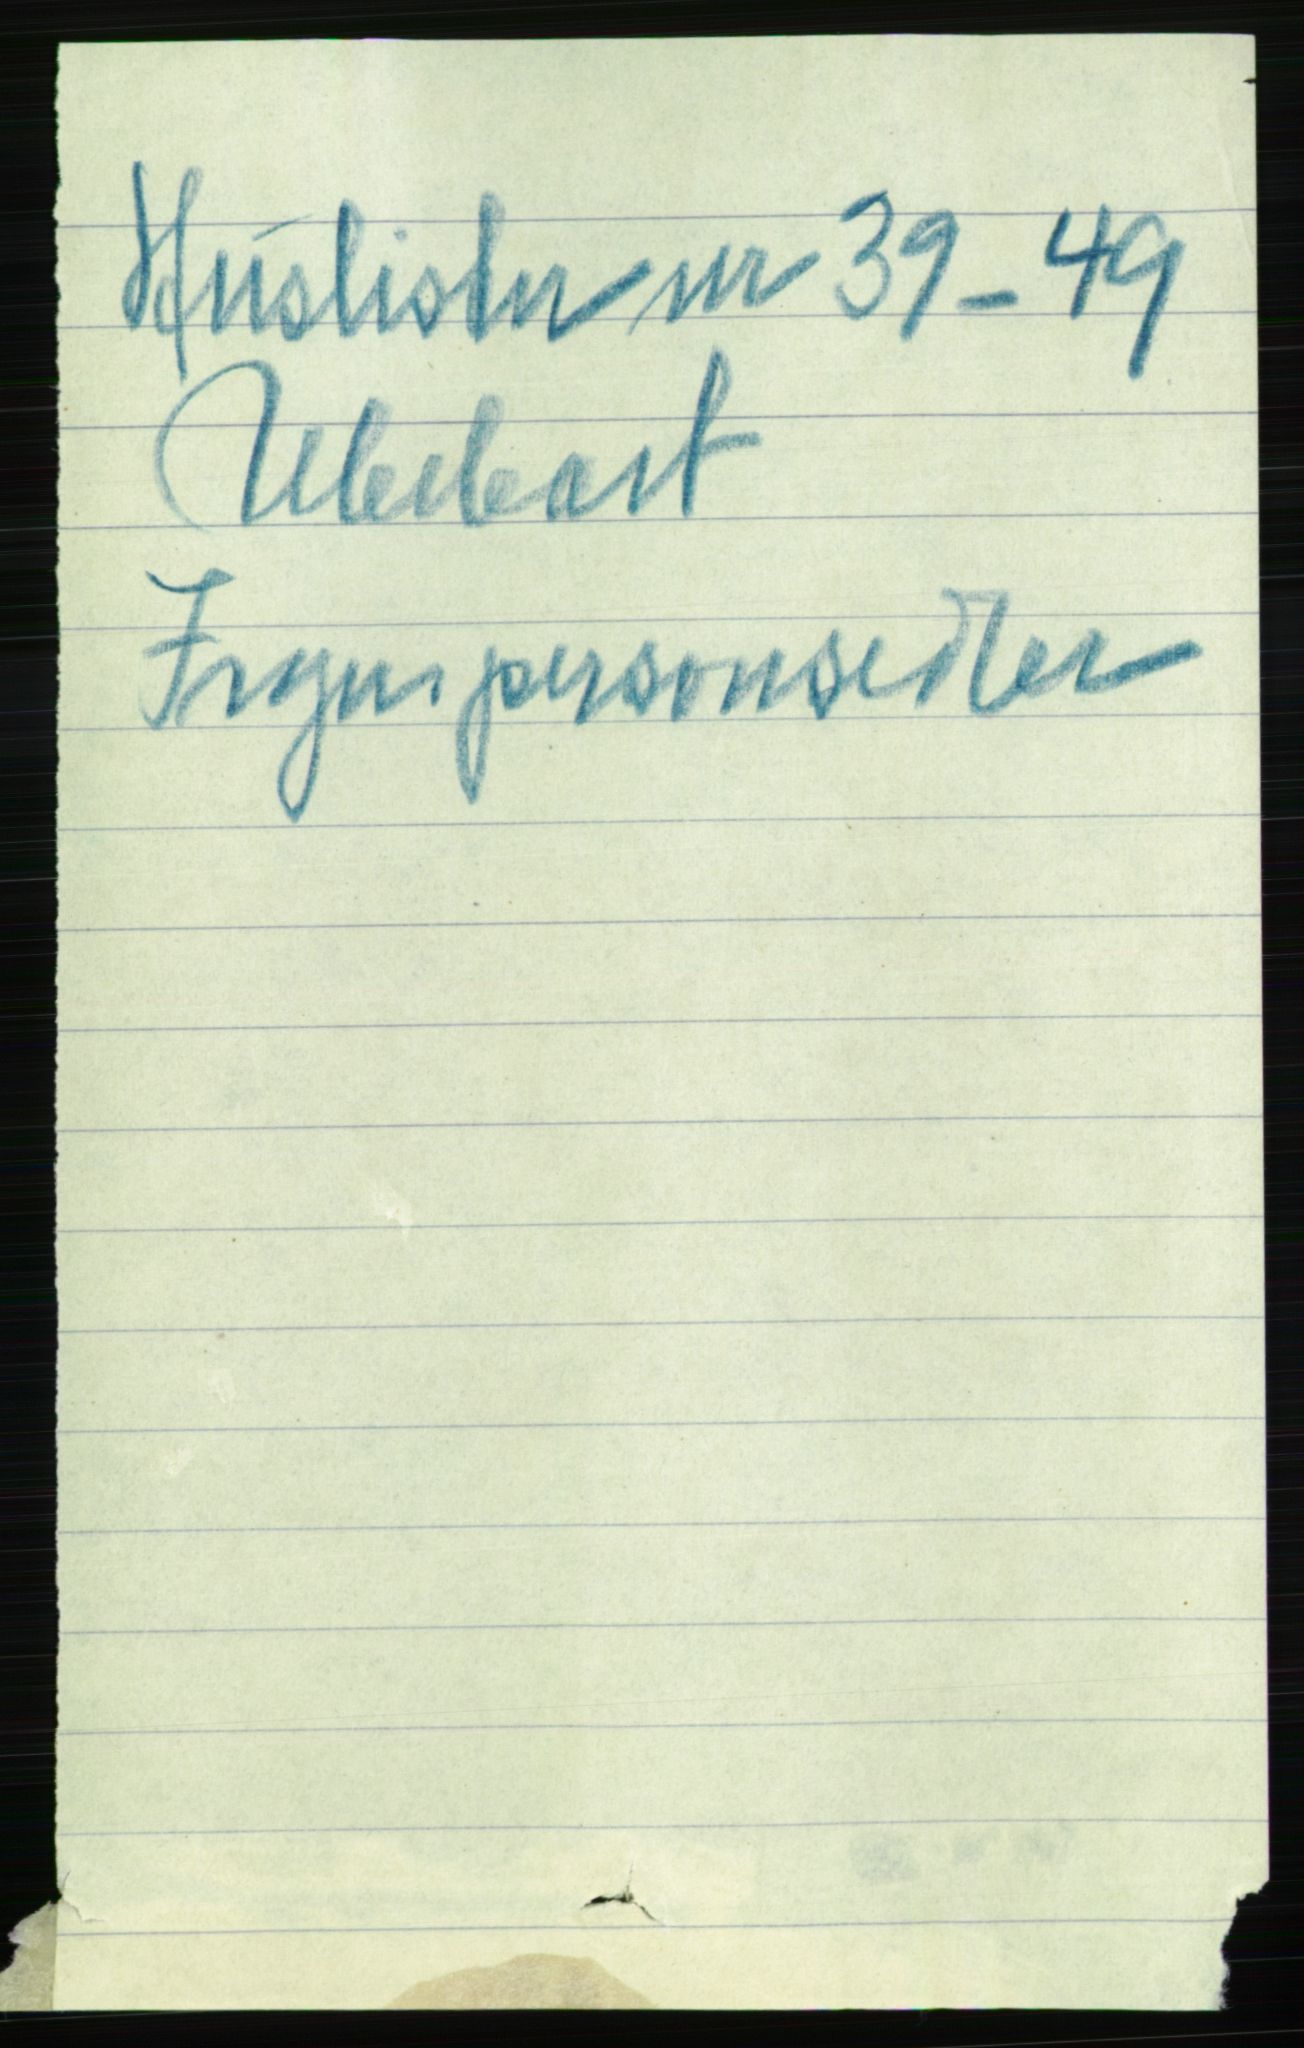 Huslister nr 39-49
Ubebodt
Ingen personsedler